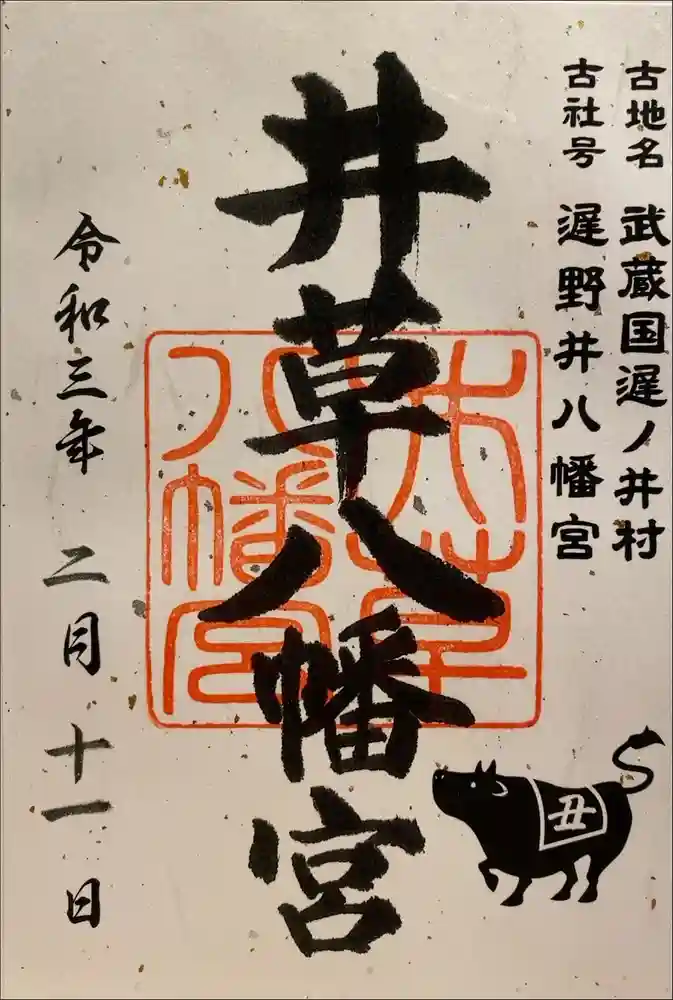 古地名 武蔵国遅ノ井村
古社号 遅野井八幡宮
井草八幡宮
井草八幡宮
令和三年 二月 十一日
丑